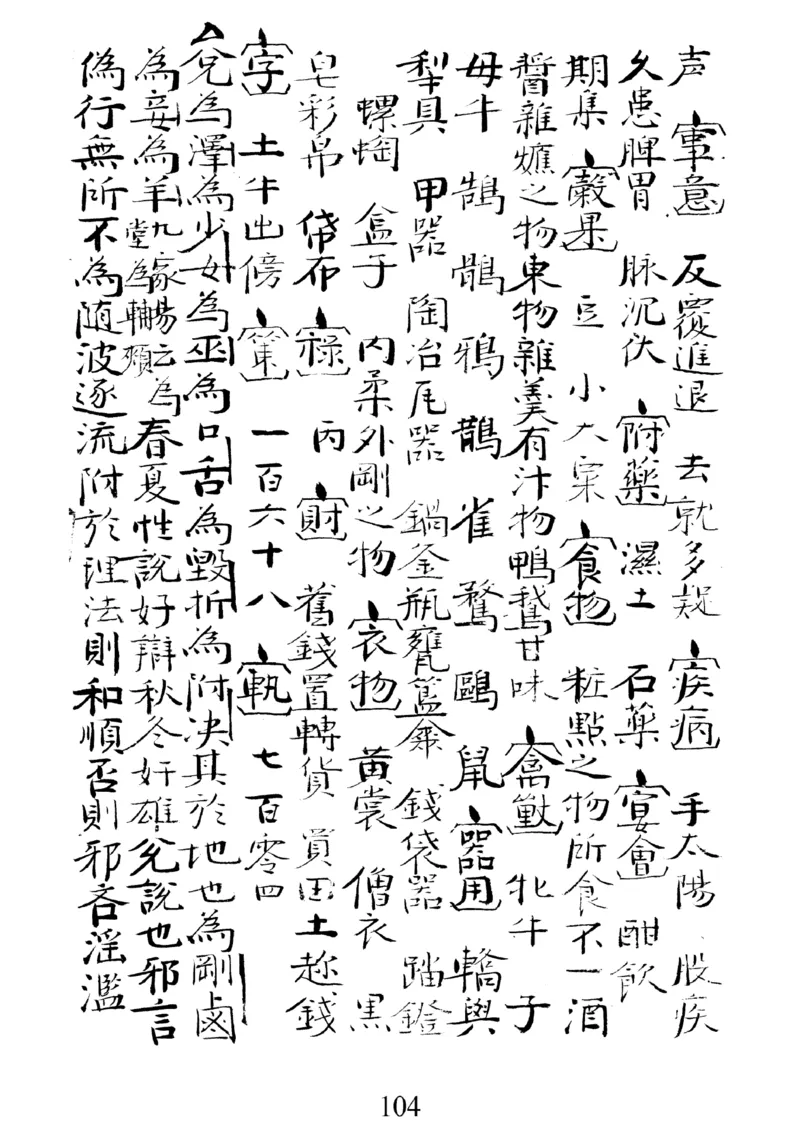 声 事意 反覆進退 去就多疑 疾病 手太陽 股疾
久患脾胃 脉沉伏 附藥 濕土 石藥 宴會 酣飲
期集 穀果 豆 小大 食物 粧點之物所食不一酒
醬雜爊之物東物雜羹有汁物鴨鵝甘味 禽獸 牝牛 子
母牛 鵠 鶻 鴉 鵲 雀 鶩 鷗 鼠 器用 轎輿
犁具 甲器 陶冶瓦器 鍋釜瓶甕 錢袋器 踏鐙
螺蜪 盒子 内柔外剛之物 衣物 黃裳 僧衣 黒
皂彩帛 帒布 祿 丙 財 舊錢置轉貨 買田土趂錢
字 土牛出傍 策 一百六十八 軌 七百零四
兌為澤為少女為巫為口舌為毀折為附決其於地也為剛鹵
為妾為羊九家易云為堂為輔頰春夏性說好辯秋冬奸雄兌說也邪言
偽行無所不為随波逐流附於理法則和順否則邪吝淫濫
104